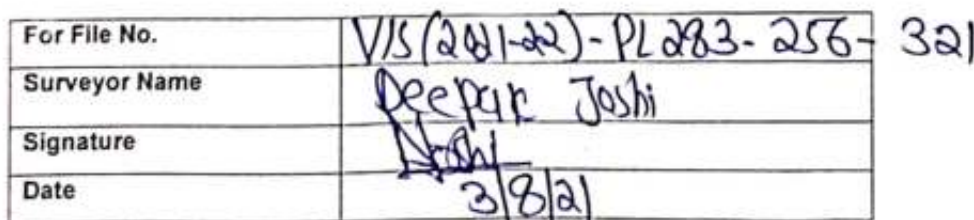 For File No. VIS(2021-22)-PL283-256-321
Surveyor Name Deepak Joshi
Signature
Date 3/8/21